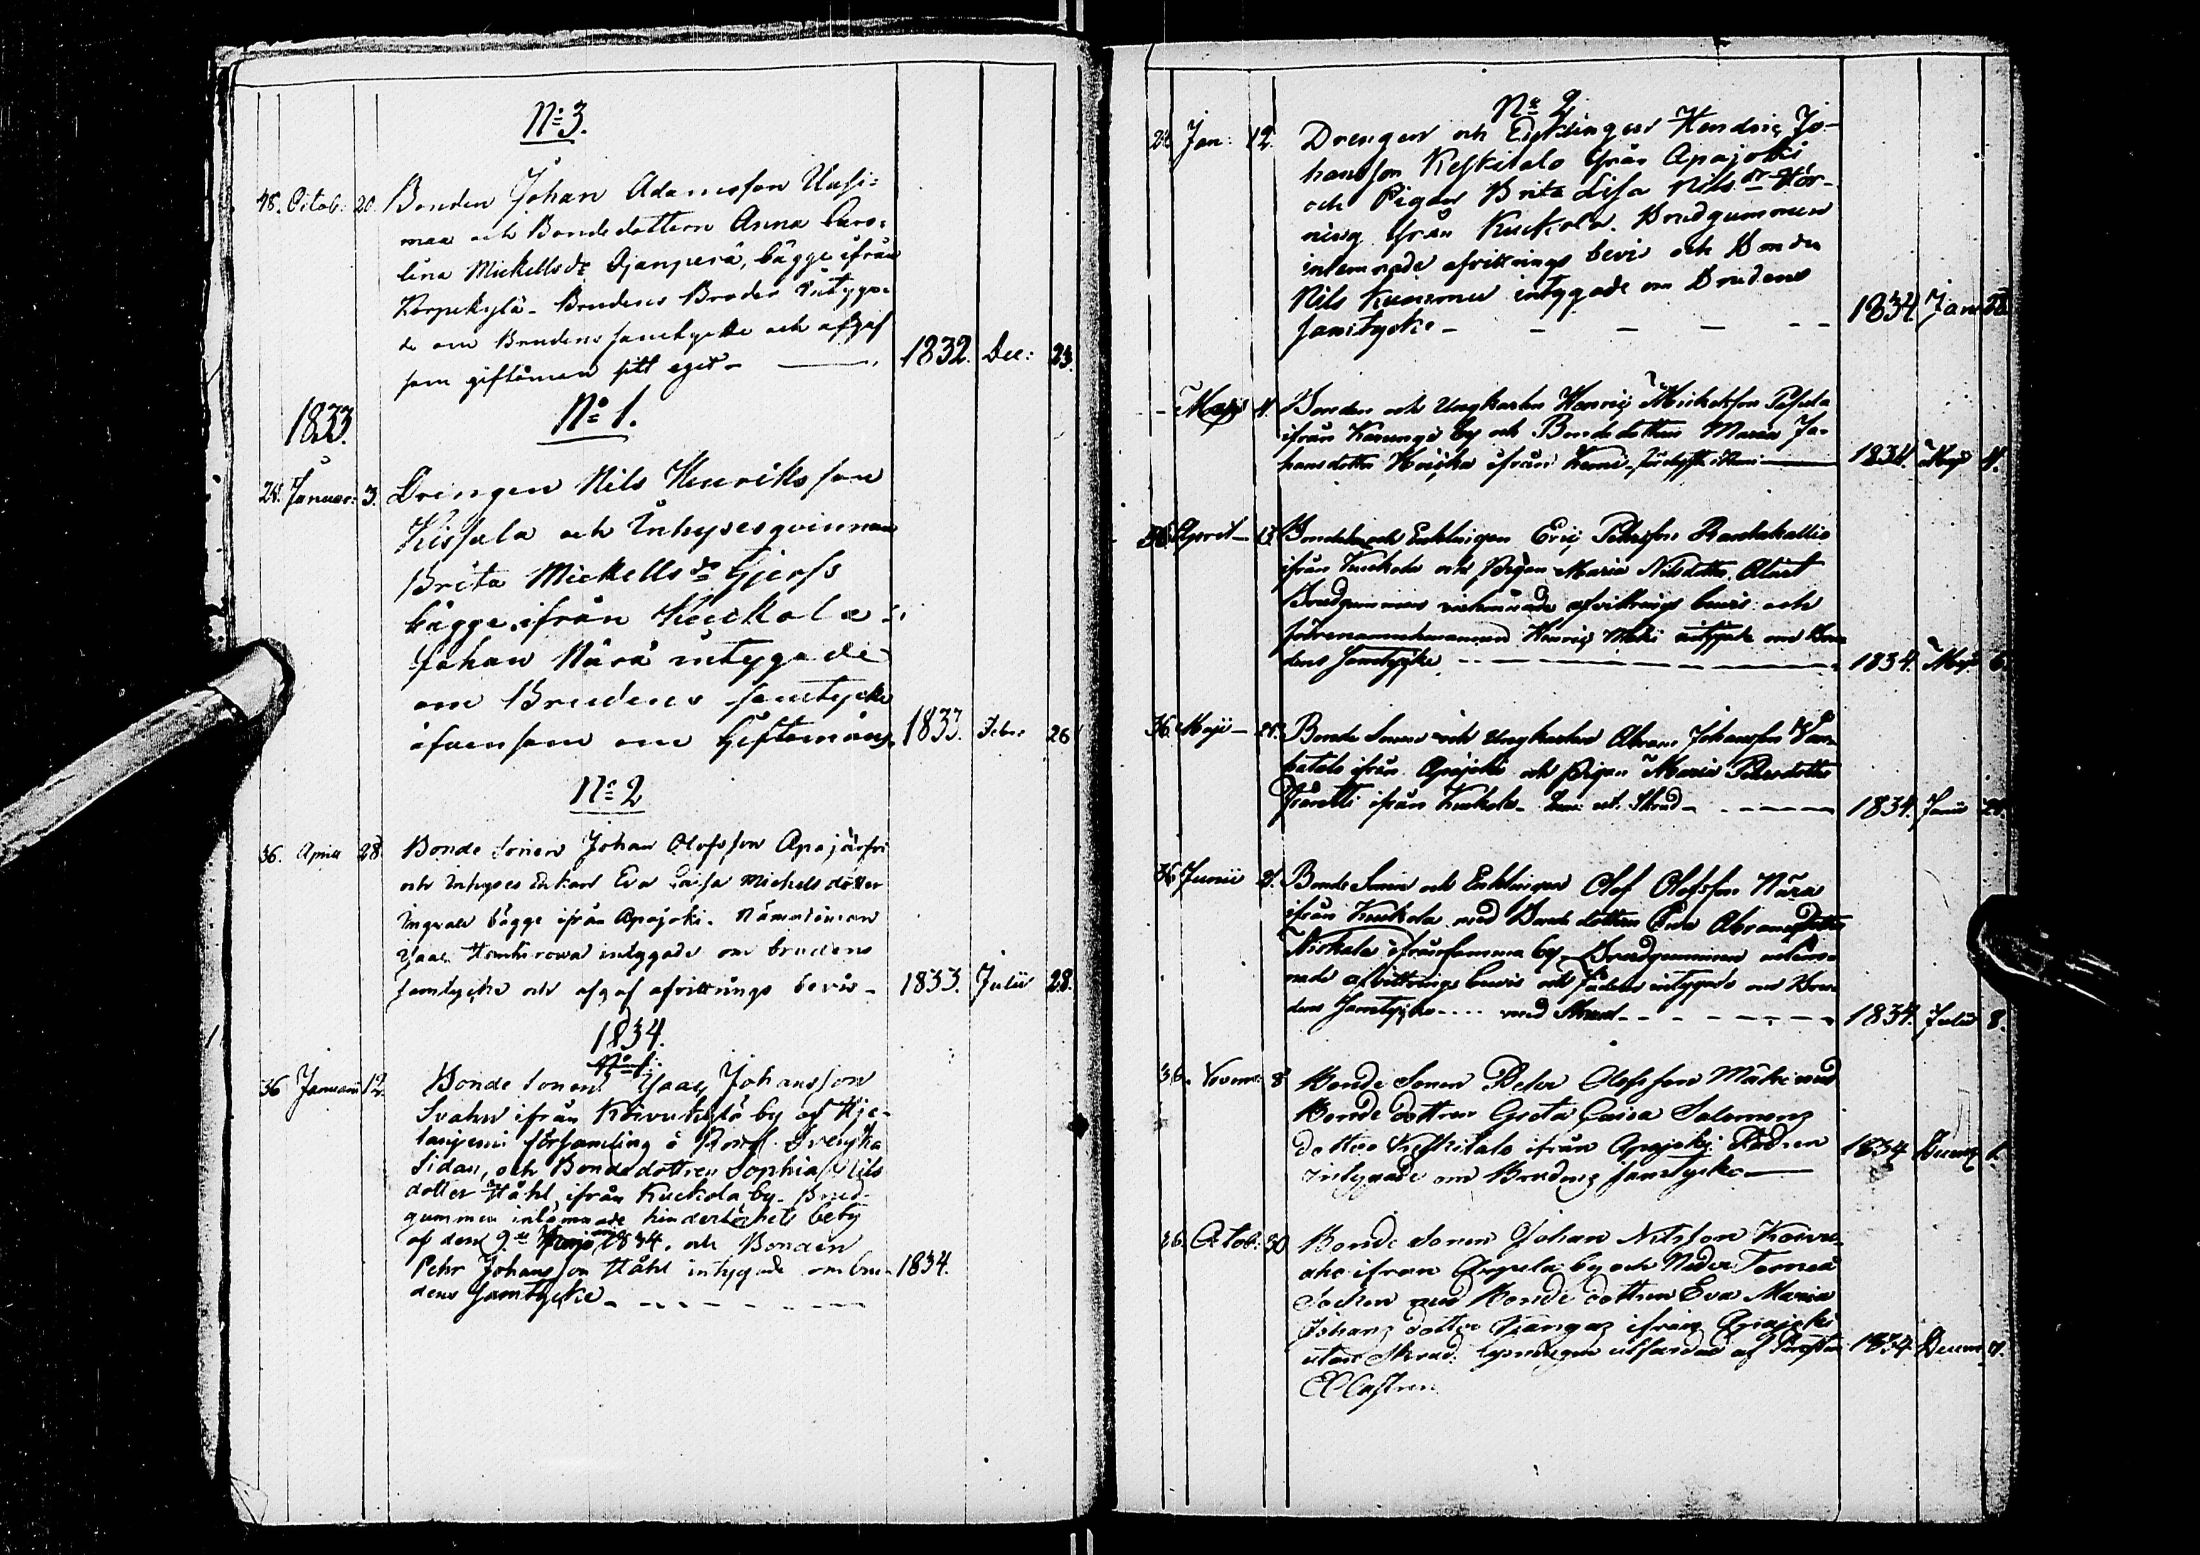 N:o 3.
48. Octob: 20. Bonden Johan Adamsson Uusi=
maa och Bondedottern Anna Caro=
lina Mickellsdr Djanperä, bägge ifrån
Korpikylä - Brudens Broder intyga=
de om Brudens samtycke och afgaf
som giftoman sitt eget - 1832. Dec: 23.
1833. N:o 1.
24. Januar: 3. Drengen Nils Henriksson
Kissala och Inhysesqvinnan
Brita Mickellsdr
bägge ifrån Kuckola:
Johan Närä intygade
om Brudens samtycke
äfvensom om Giftomans 1833. Febr: 26
N:o 2
36. April 28 Bonde Sonen Johan Olofsson
och Inhyses Enkan Eva Caisa Michelsdotter
bägge ifrån Apajoki. Nämndeman
Isaac intygade om brudens
samtycke och afgaf afvittrings bevis - 1833. Julii 28.
1834.
N:o 1.
36 Januarii 12. Bonde Sonen Isaac Johansson
Svahn ifrån Koivukylä by af Hje-
taniemi församling å Svenska
Sidan, och Bondedottren Sophia Nils
dotter Ståhl, ifrån Kuckola by. Brud-
gummen inlämnade hinderlöshets betyg
af den 9de 1834. och Bonden
Pehr Johansson Ståhl intygade om bru- 1834.
dens samtycke -
N:o 2
24 Jan: 12. Drengen och Enklingen Hendric Jo-
hansson Keskitalo från Apajoki
och Pigan Brita Lisa Nilsdr Hör-
ning från Kuckola. Brudgummen
inlemnade afvittrings bevis och Bonden
Nils intygade om Brudens
samtycke - 1834. Jan 28.
- Maji 4. Bonden och Ungkarlen Henric Mickelsson
ifrån Karungi by och Bondedottren Maria Jo-
hansdotter ifrån Kemi 1834. Maji 4.
36 April - 13 Bonden och Enklingen Eric Pehrsson Rantakallio
ifrån Kuckola och Pigan Maria Nilsdotter Alart
Brudgummen inlemnade afvittrings bevis och
Henric Mäki intygade om Bru
dens samtycke - 1834. Maji 6.
36. Maji - Bonde Sonen och Ungkarlen Abram Johansson
ifrån Apajoki och Pigan Maria Pehrsdotter
ifrån Kuckola - 1834. Junii
36 Junii Bonde Sonen och Enklingen Olof Olofsson Närä
ifrån Kuckola med Bonde dottren Abramsdotter
Niskala ifrån samma by - Brudgummen inlem=
nade afvittrings bevis och Fadren intygade om Bru
dens samtycke - - - 1834. Julii 8.
36. Novem: 8 Bonde Sonen Peter Olofsson Mäki med
Bonde dottren Greta Caisa Salomons
dotter Keskitalo ifrån Apajoki Fadren 1834 Decem
intygade om Brudens samtycke -
36. Octob: 30 Bonde Sonen Johan Nilsson Koivu-
aho ifrån Arpela by och Neder Torneå
Socken med Bonde dottren Eva Maria
Johans dotter Kangas ifrån Apajoki
utan Lysningen utfärdad af Prosten 1834 Decem
Castren